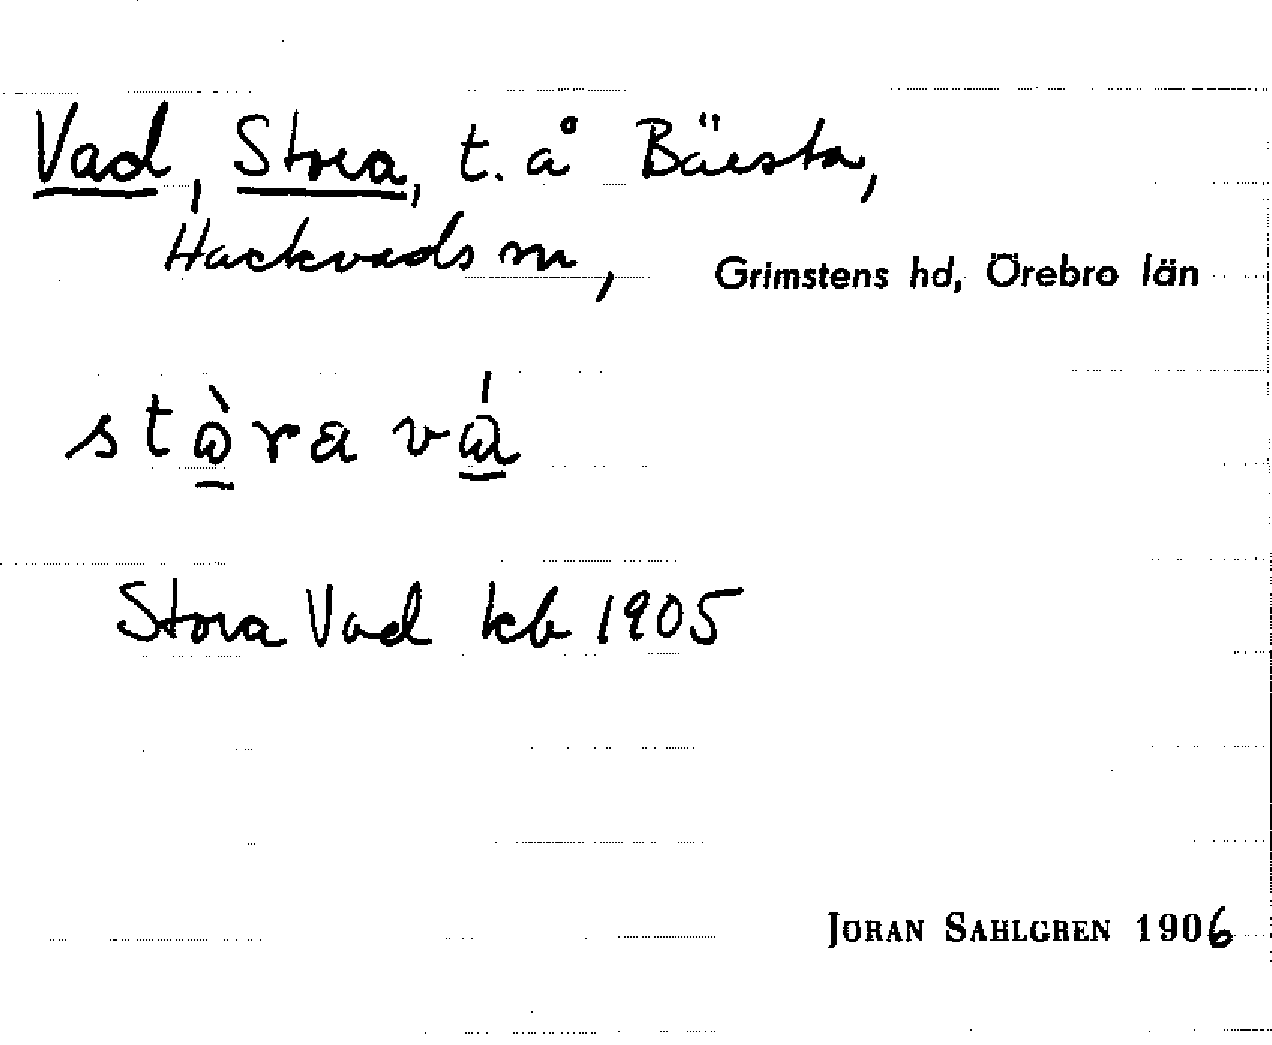 Vad, Stora, t. å Bäesta,
Hackvads sn, Grimstens hd, Örebro län
stòra vá
Stora Vad kb 1905
JORAN SAHLGREN 1906